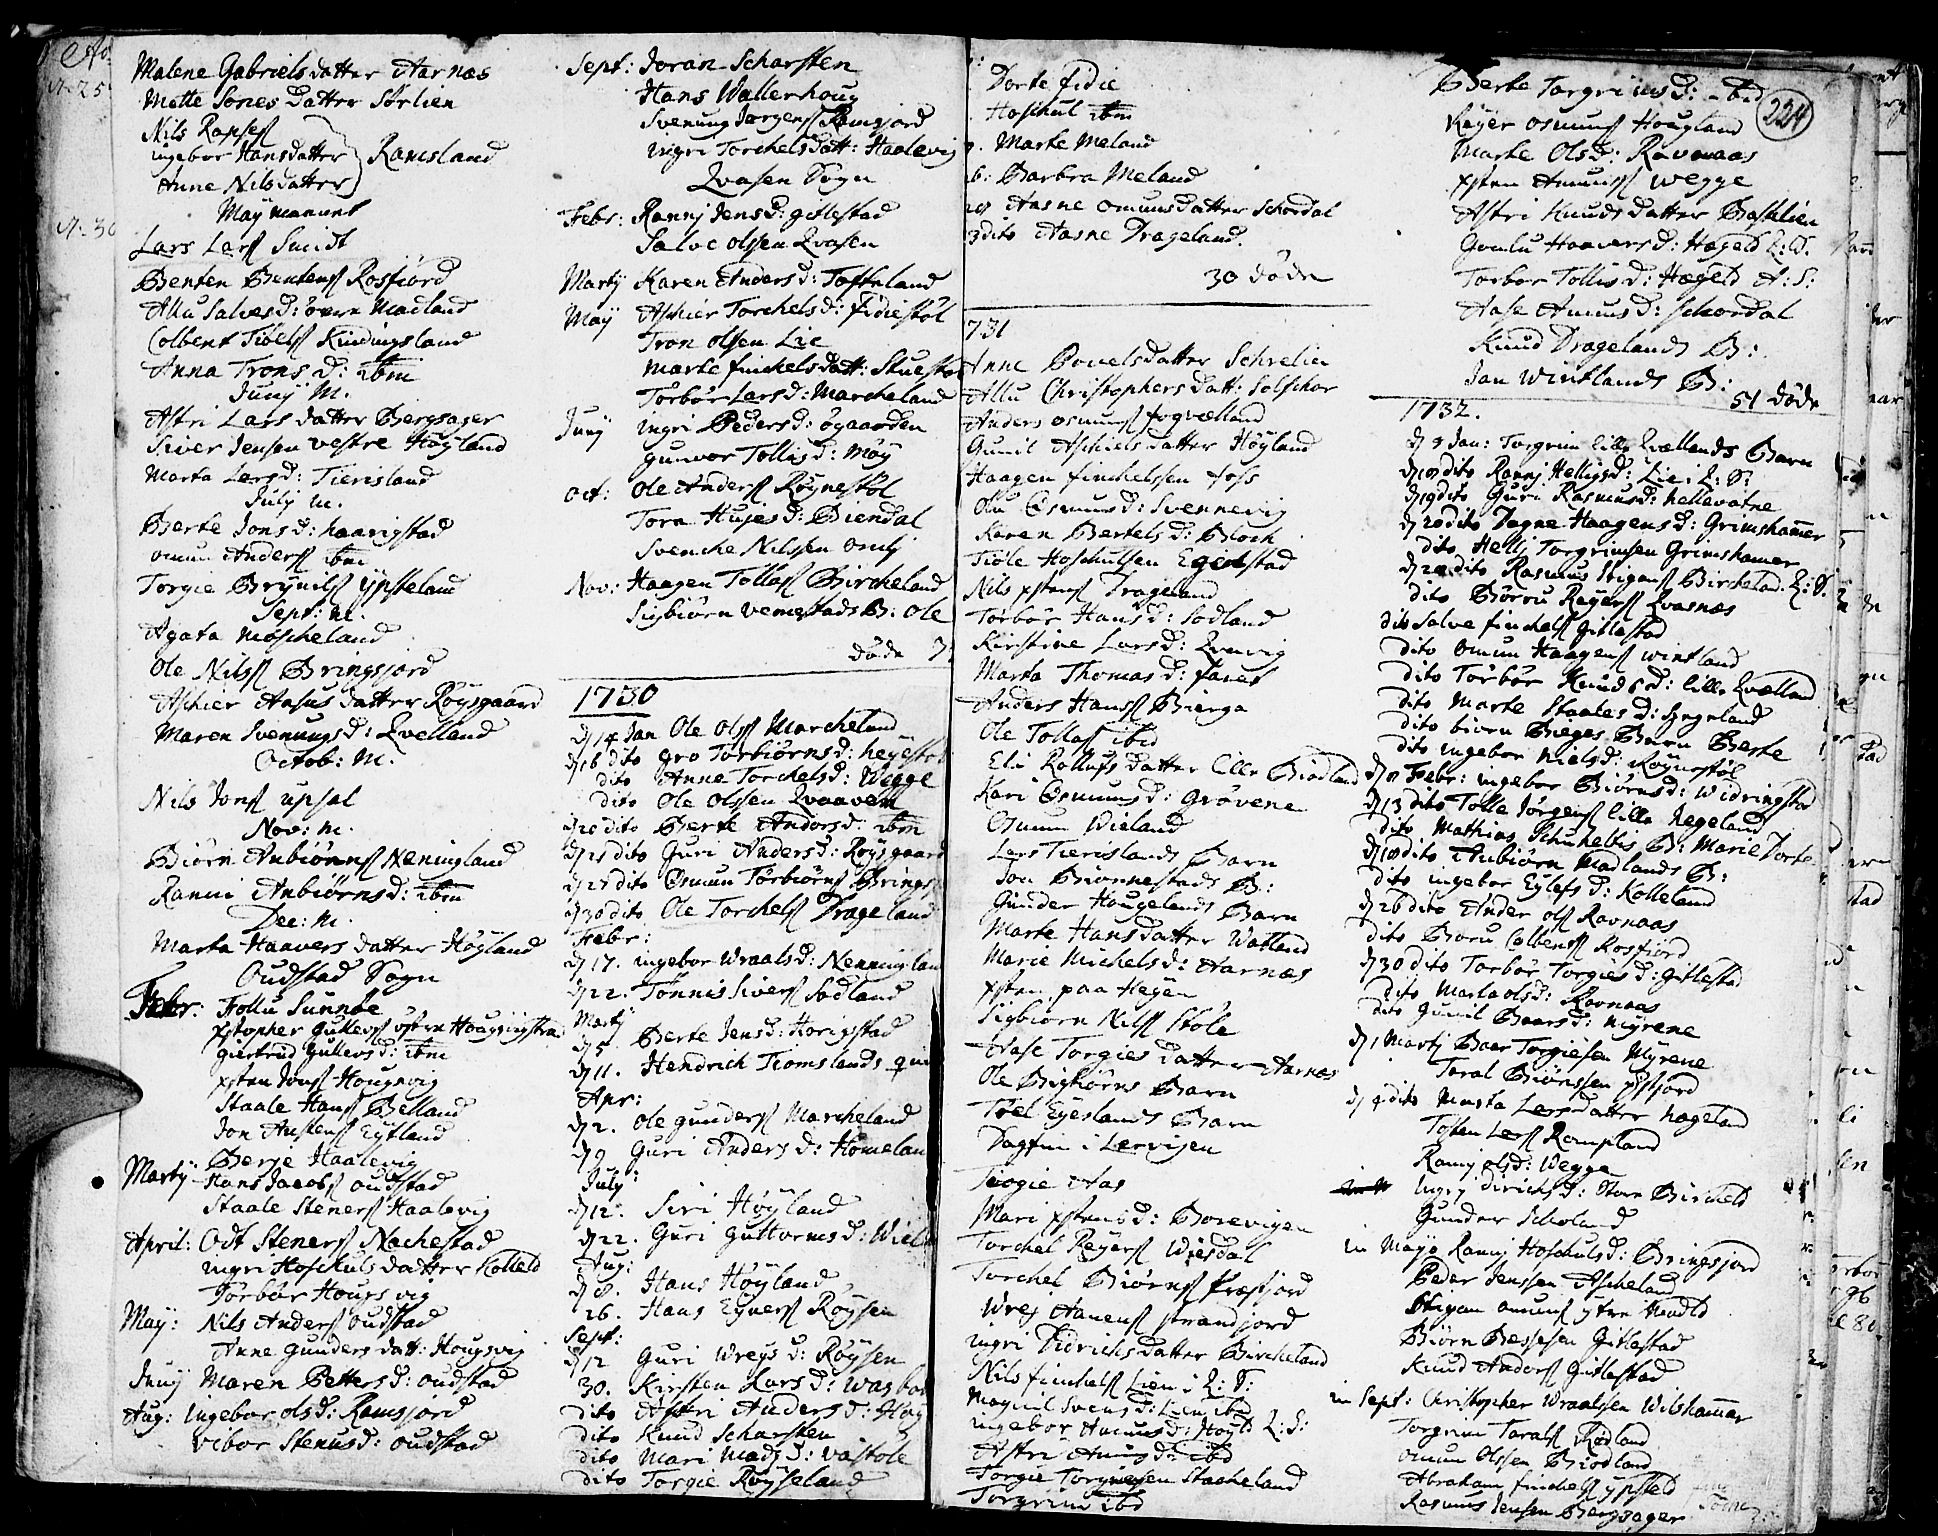 Malene Gabrielsdatter Aarnæs
Mette Sones datter Sørlien
Nils Rapses
ingebor Hansdatter } Ramsland
Anne Nilsdatter
May maanet
Lars Lars Smidt
Benten Bentens Rosfiord
Allu Salves d: øvere Madland
Colbent Tiøels Kindingsland
Anna Trons d: ibm
Junij M.
Astri Lars datter Bergsager
Siver Jensen vestre Høyland
Marta Lars d: Tierisland
July M.
Berte Jons d: haarigstad
omun Anders ibm
Torgie Brynils ÿpseland
Sept: M.
Agata Møscheland
Ole Nilss Bringsjord
Aschier Aasus datter Røysgaard
Maren Svenungs d: Qvelland
Octob: M.
Nils Jons upsal
Nov: M.
Biørn Anbiørns Neningland
Ranni Anbiørns d: ibm
Dec: M.
Marta Haavers datter Høyland
Oudstad Sogn
Febr. Follu Sunnde
xstopher Gullevs østre
Giertrud Gullevs d: ibm
xsten Jons Hougsvig
Staale Hans Belland
Jon Austens Eytland
Berje Haalevig
Marty Hans Jacobs oudstad
Staale Steners Haalevig
April: Odt Steners Nachestad
ingri Hoschuls datter Kolleld
Torbør Hougsvig
May: Nils Anders oudstad
Anne Gunders datt: Hougsvig
Junij Maren Petters d: oudstad
Aug: Ingebor ols d: Ramsjord
Vibor Stenus d: oudstad
Sept: Joran Scharsten
Hans Wallerhoug
Svenung Jørgens Ramsjord
ingri Torchelsdatt: Haalevig
Qvasen Sogn
Febr: Rannj Jens d: gitlestad
Salve olssen Qvasen
Marty Karen Anders d: Tofteland
May Aschier Torchels d: fidiestøl
Tron olsen Lie
Marte finchelsdatt:
Torbør Lars d: Marcheland
Junij ingri Peders d: øgaarden
gunvor Tollis d: Møy
oct: Ole Anders Røynestøl
Tora Hujes d: Biendal
Svenche Nilssen omlj
Nov: Haagen Tollas Bircheland
Sigbiørn vemestads B: Ole
døde
1730
d 14 Jan Ole Olss Marcheland
d 16 dito Gro Torbiørns d:
dito Anne Torchels d: Wegge
dito Ole Olssen Qvaaven
d 20 dito Berte Anders d: ibm
d 21 dito Guri Anders d: Røysgaard
d 28 dito Osmun Torbiørns
d 30 dito Ole Torchels Drageland
Febr:
d 17. ingebor Wraals d:
d 22. Tønnis Sivers Sodland
Marty
d 5. Berte Jens d: Horigstad
d 11. Hendrich Tiomslands
Apr:
d 2. ole gunders Marcheland
d 9 Guri Anders d:
July:
d 12. Siri Høyland
d 22. Guri Guttorms d:
Aug:
d 8. Hans Høyland
26. Hans Eyvers Røysen
Sept:
d 12 Guri Wreys d: Røysen
30. Kirsten Lars d:
dito Astri Anders d:
dito Knud Scharsten
dito Mari Mads d: vastøle
dito Torgie Røysseland
Dorte fidie
Hoschul ibm
Marte Meland
Barbra Meland
Aasne omunsdatter Schordal
dito Aasne Drageland.
30 døde
731
Anne Povelsdatter Schrelien
Allu Christophersdatt: Solschor
Anders osmuns fogvelland
Gunil Aschiels datter Høyland
Haagen finchelssen foss
Olu Osmuns d: Svennevig
Karen Bertels d: Bloch
Tiøle Hoschulsen Egenstad
Nils xstens Drageland
Torbor Hans d: Sodland
Kirstine Lars d: Qvavig
Marta Thomas d: faret
Anders Hans Bierga
Ole Tollas ibid
Eli Rollufs datter lille Biodland
Kari Osmuns d: Grövene
Osmun Wieland
Lars Tierislands Barn
Jon Biørnestads B:
Gunder Hougelands Barn
Marte Hansdatter Watland
Marie Michels d: Aarnæs
xsten paa Heyen
Sigbiørn Nilss Støle
Aase Torgies datter Aarnæs
Ole Bighørns Barn
Toel Eyeslands Barn
Dagfin i Lervigen
Torgie Aas
Mari xstens d: Borevigen
Torchel Reyers Wiesdal
Torchel Biørns fræsfjord
Wrej Aanens strandjord
ingri Didrichsdatter Bircheland
Nils finchels Lien i L: S:
Magnil Svens d: Lien ibid
ingebor Amuns d: Høyld L: S:
Astri Amuns d: ibd
Torgie Torgiussen Stacheland
Torgrim ibd
Berte Torgrims d: ibid
224
Reyer osmuns Hougland
Marte Ols d: Ravnaas
xsten Amuns Wegge
Astri Knuds datter Baschlien
Gunlu Haavers d: Hægeld L: S.
Torbor Tollis d: Hægeld A: S:
Aase Amuns d: Schordal
Knud Dragelands B:
Jan Wintlands B:
51 døde
1732.
d 8 Jan: Torgrim lille Qvellands Barn
d 10 dito Rannj Helligs d: Lie i L: S:
d 19 dito Guri Rasmus d: hallevatne
d 20 dito Dagne Haagens d: Grimshamer
dito Hellj Torgrimsen Grimshamer
d 20 dito Rasmus Stigans Bircheland L: S.
dito Børru Reyers Qvasnæs
dito Salve finchels Gitlestad
dito omun Haagens wintland
dito Torbor Knuds d: lille Qvelland
dito Marte Staales d: Egeland
dito biørn Bieges Barn Berte
dito ingebor Niels d: Røynestøl
d 8 Febr: ingebor Biørns d: Widringstad
d 13 dito Tolle Jørgens lille hegeland
dito Mathias Schinhelis B: Marie Dorte
d 18 dito Anbiørn Madlands B:
dito ingebor Eylefs d: Kolleland
d 26 dito Ander ols Ravnaas
dito Boru Colbens Rosfiord
d 30 dito Torbor Torgies d: Gitlestad
dito Marta ols d: Ravnaas
dito Gunil Baars d: Myrene
d 1 Martj Baar Torgiesen Myrene
Toral Biørnssen
d 4 dito Marta Larsdatter hageland
Tosten Lars Rompland
Rannj ols d: Wegge
Ingrj Dirichs d: Store Bircheld
Gunder Scholand
in Mayo Rannj Hoschuls d: Bringsjord
Peder Jenssen Ascheland
Stigan omuns ytre
Biørn Bessesen Gitlestad
Knud Anders Gitlestad
in Sept: Christopher Wraalsen Wilshamar
Torgrim Tarals Rødland
omun Olssen Biodland
Abraham finchels ypseld
Rasmus Jensen Bergsager